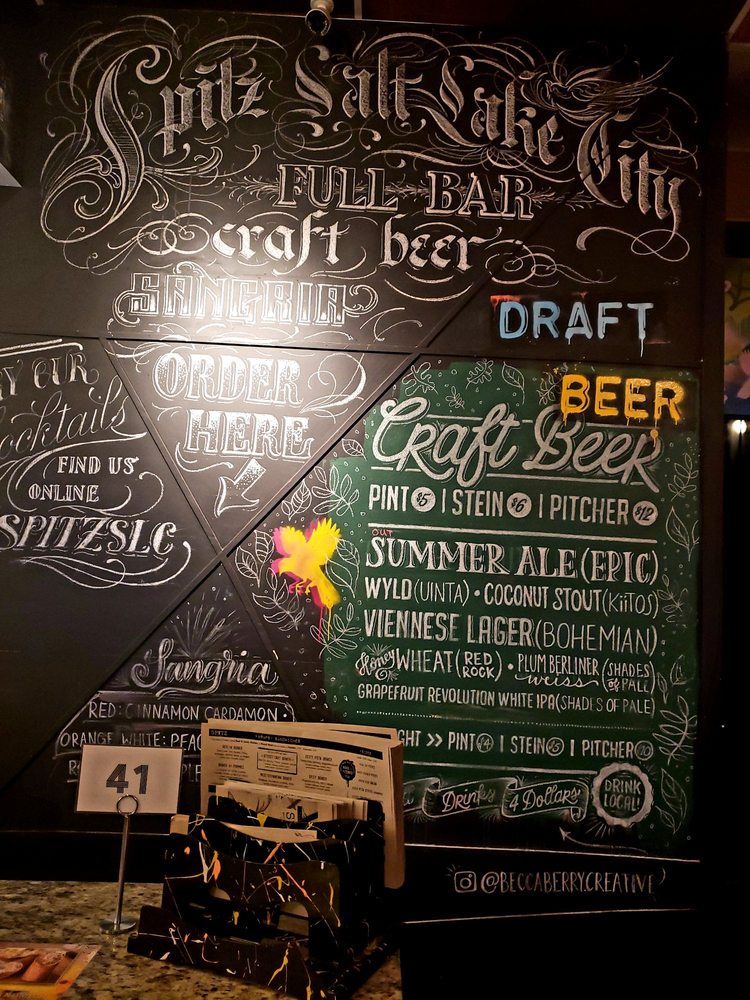 Spitz Salt Lake City
FULL BAR
craft beer
SANGRIA
ORDER
HERE
DRAFT
BEER
OUR
cocktails
FIND US
ONLINE
SPITZSLC
Craft Beer
PINT $5 | STEIN $6 | PITCHER $12
OUT
SUMMER ALE (EPIC)
WYLD (UINTA) • COCONUT STOUT (KiiTOS)
VIENNESE LAGER (BOHEMIAN)
Honey WHEAT (RED ROCK) • PLUM BERLINER weiss (SHADES of PALE)
GRAPEFRUIT REVOLUTION WHITE IPA (SHADES OF PALE)
GHT >> PINT $4 | STEIN $5 | PITCHER $10
Drinks 4 Dollars
DRINK
LOCAL!
@BECCABERRY.CREATIVE
Sangria
RED: CINNAMON CARDAMON •
ORANGE WHITE: PEAC
PLE
41
SPITZ